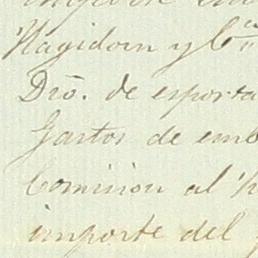 Hagidorn y Cª
Dro. de esporta
Gastos de emb
Comision al
importe del